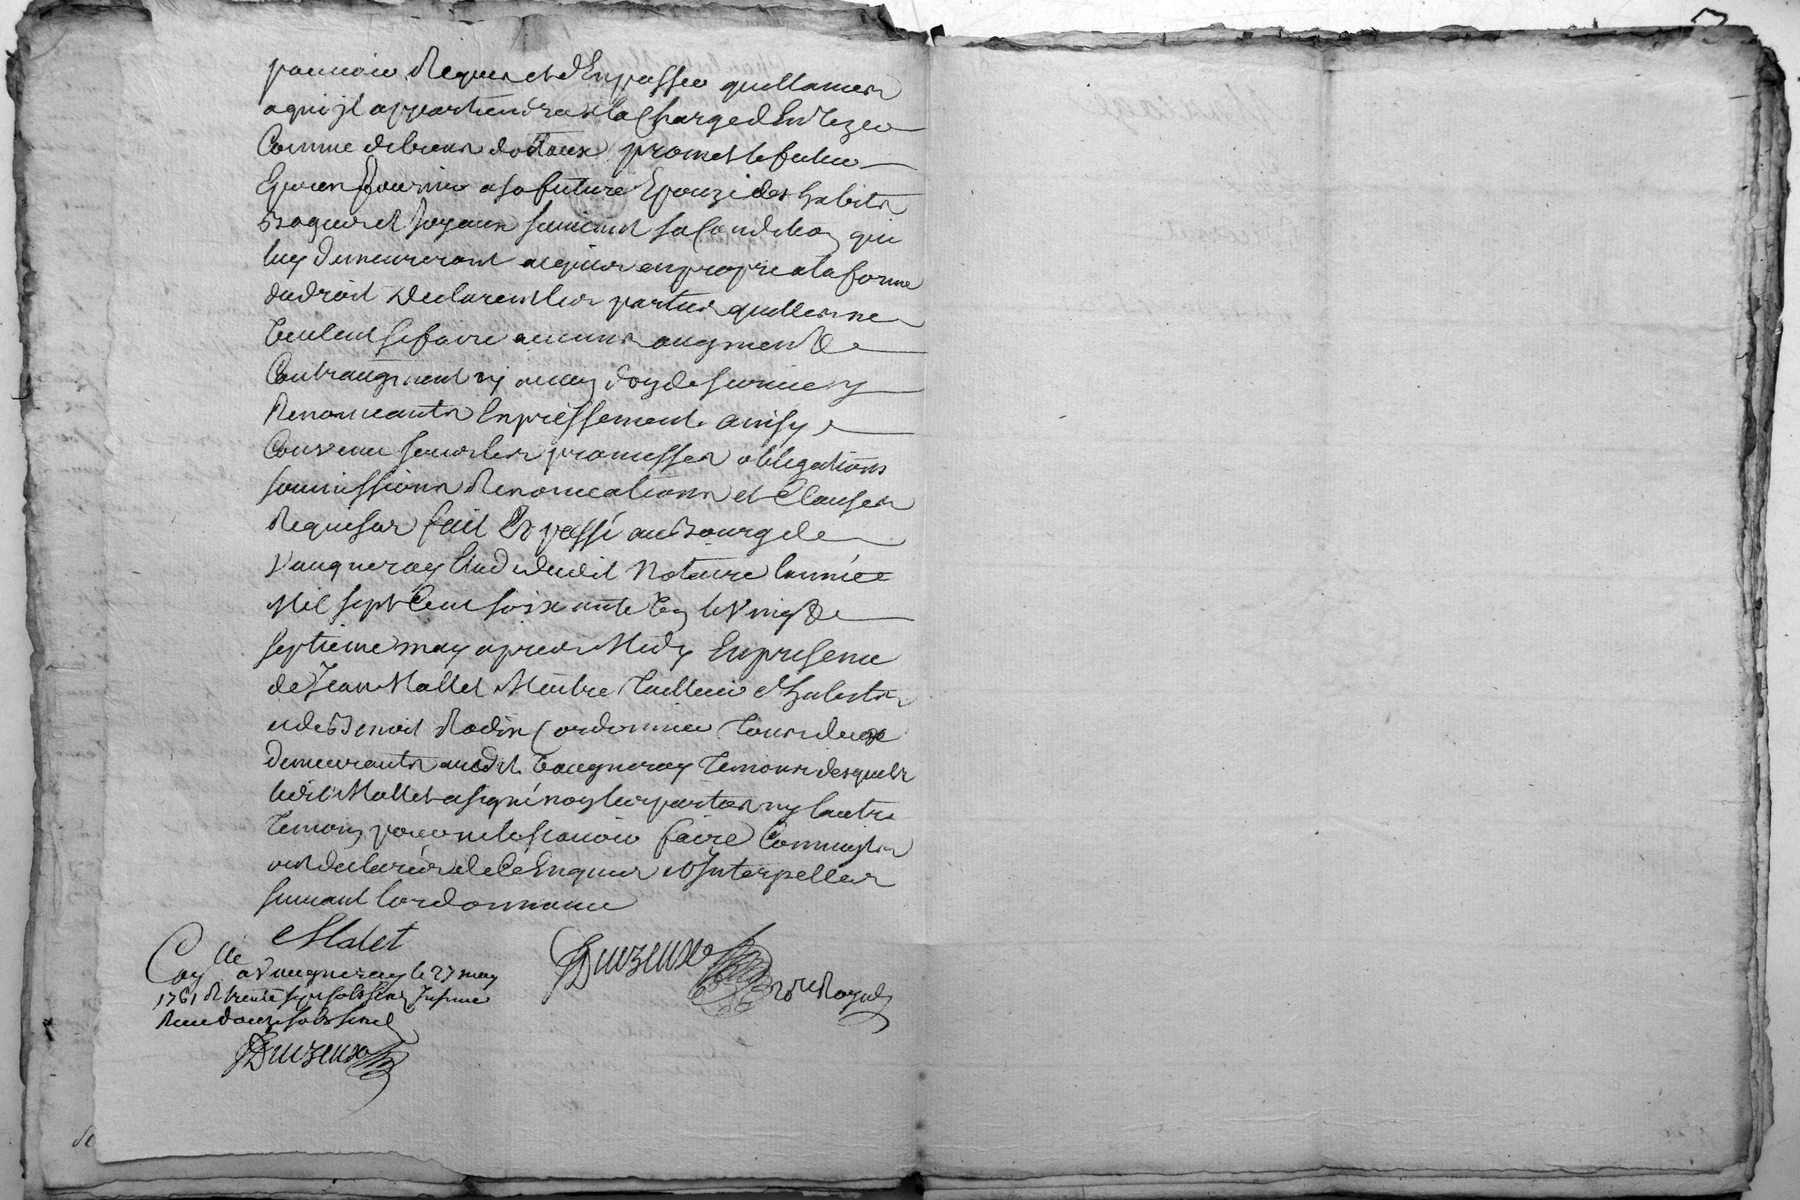 pouvoir Requerir et d'En passer quittances
a qui jl appartiendra a la Charge d'En Uzer
Comme de biens dotaux promet le futur
Epoux fournir a sa future Epouze des habits
Bagues et Joyaux suivant sa Condition qui
luy demeureront acquis en propre a la forme
du droit declarent les parties quelles ne
veulent se faire aucuns augment de
Contraugment ny aucun don de survie
Renonceants Expressement ainsy
Convenu sous les promesses obligations
soumissions Renonciations et Clauses
Requises fait Et passé au Bourg de
Vaugneray Etude dudit Notaire l'année
Mil sept Cent soixante un le Vingt
septieme may apres Midy En presence
de Jean Mallet Maitre Tailleur d'habits
et de Benoit Rodin Cordonnier tous deux
demeurants audit Vaugneray temoins desquels
ledit Mallet a signé non les parties ny l'autre
temoin pour ne le scavoir faire Comme ils
ont declarés de Ce Enquis et Interpellés
suivant l'ordonnance
Malet
Con.lle a Vaugneray le 27 may
1761 R trente six sols six d Insinué
Reçu douze sols six d